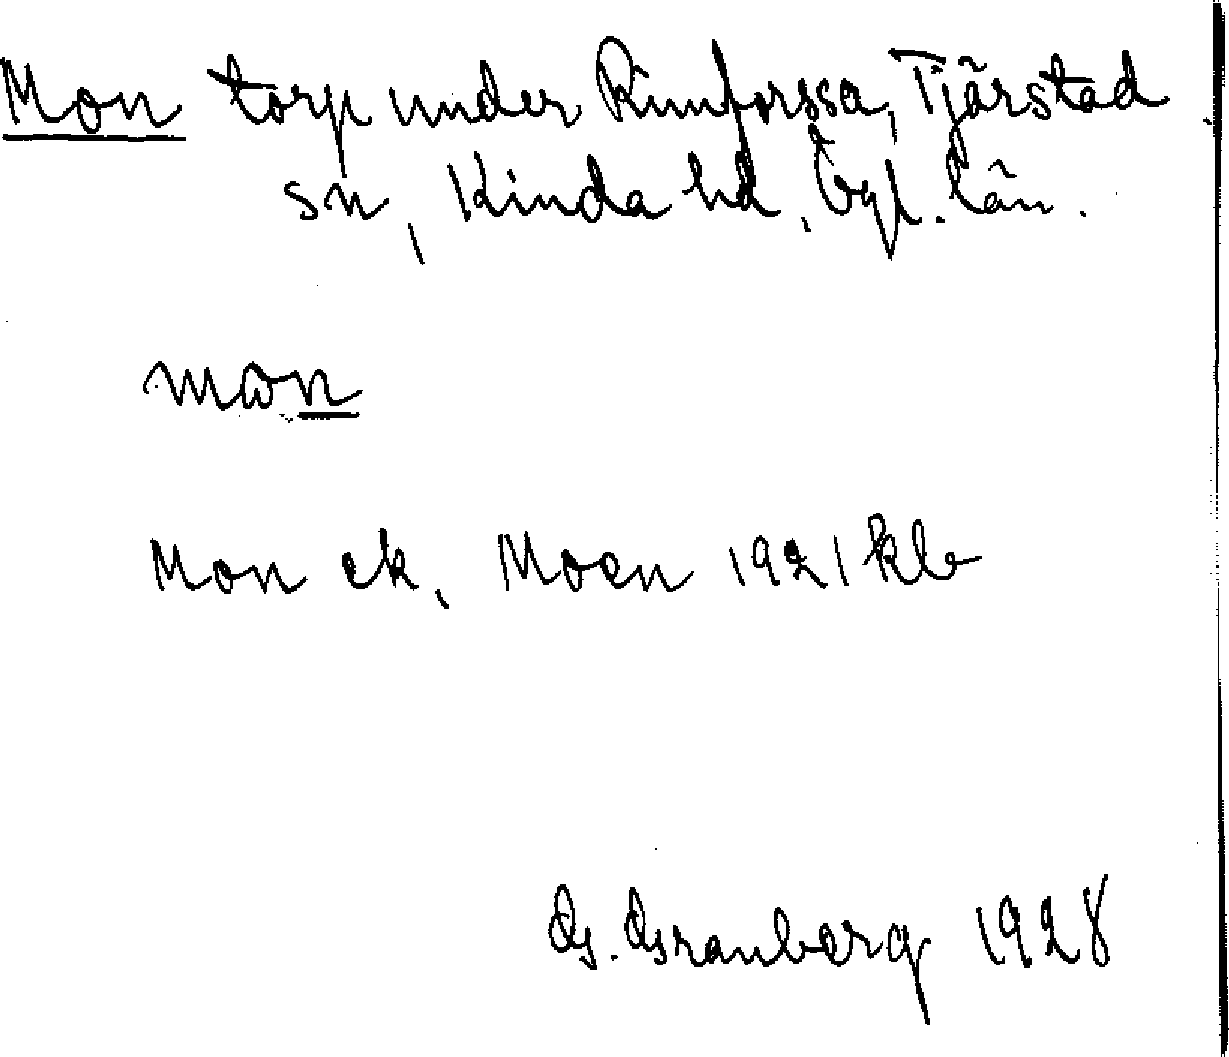 Mon torp under Rimforssa, Tjärstad
sn, Kinda hd, Ögl. län.
mωn
Mon ek, Moen 1921 kb
G. Granberg 1928